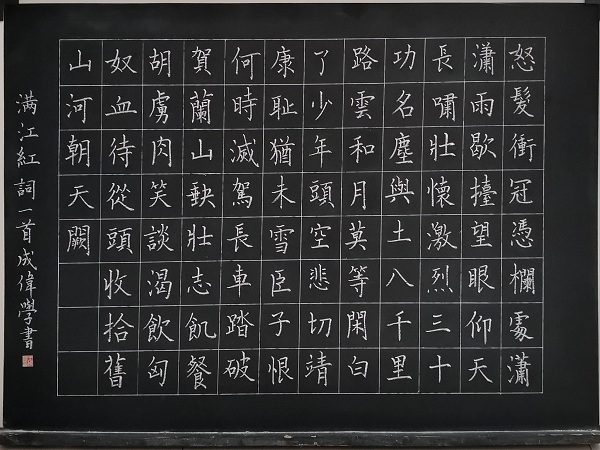 怒髮衝冠憑欄處瀟
瀟雨歇擡望眼仰天
長嘯壯懷激烈三十
功名塵與土八千里
路雲和月莫等閑白
了少年頭空悲切靖
康耻猶未雪臣子恨
何時滅駕長車踏破
賀蘭山缺壯志飢餐
胡虜肉笑談渴飲匈
奴血待從頭收拾舊
山河朝天闕
满江紅詞一首成偉學書